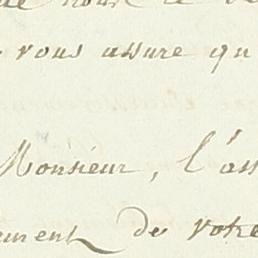 vous assure qu
Monsieur, l'ass
ment de votre